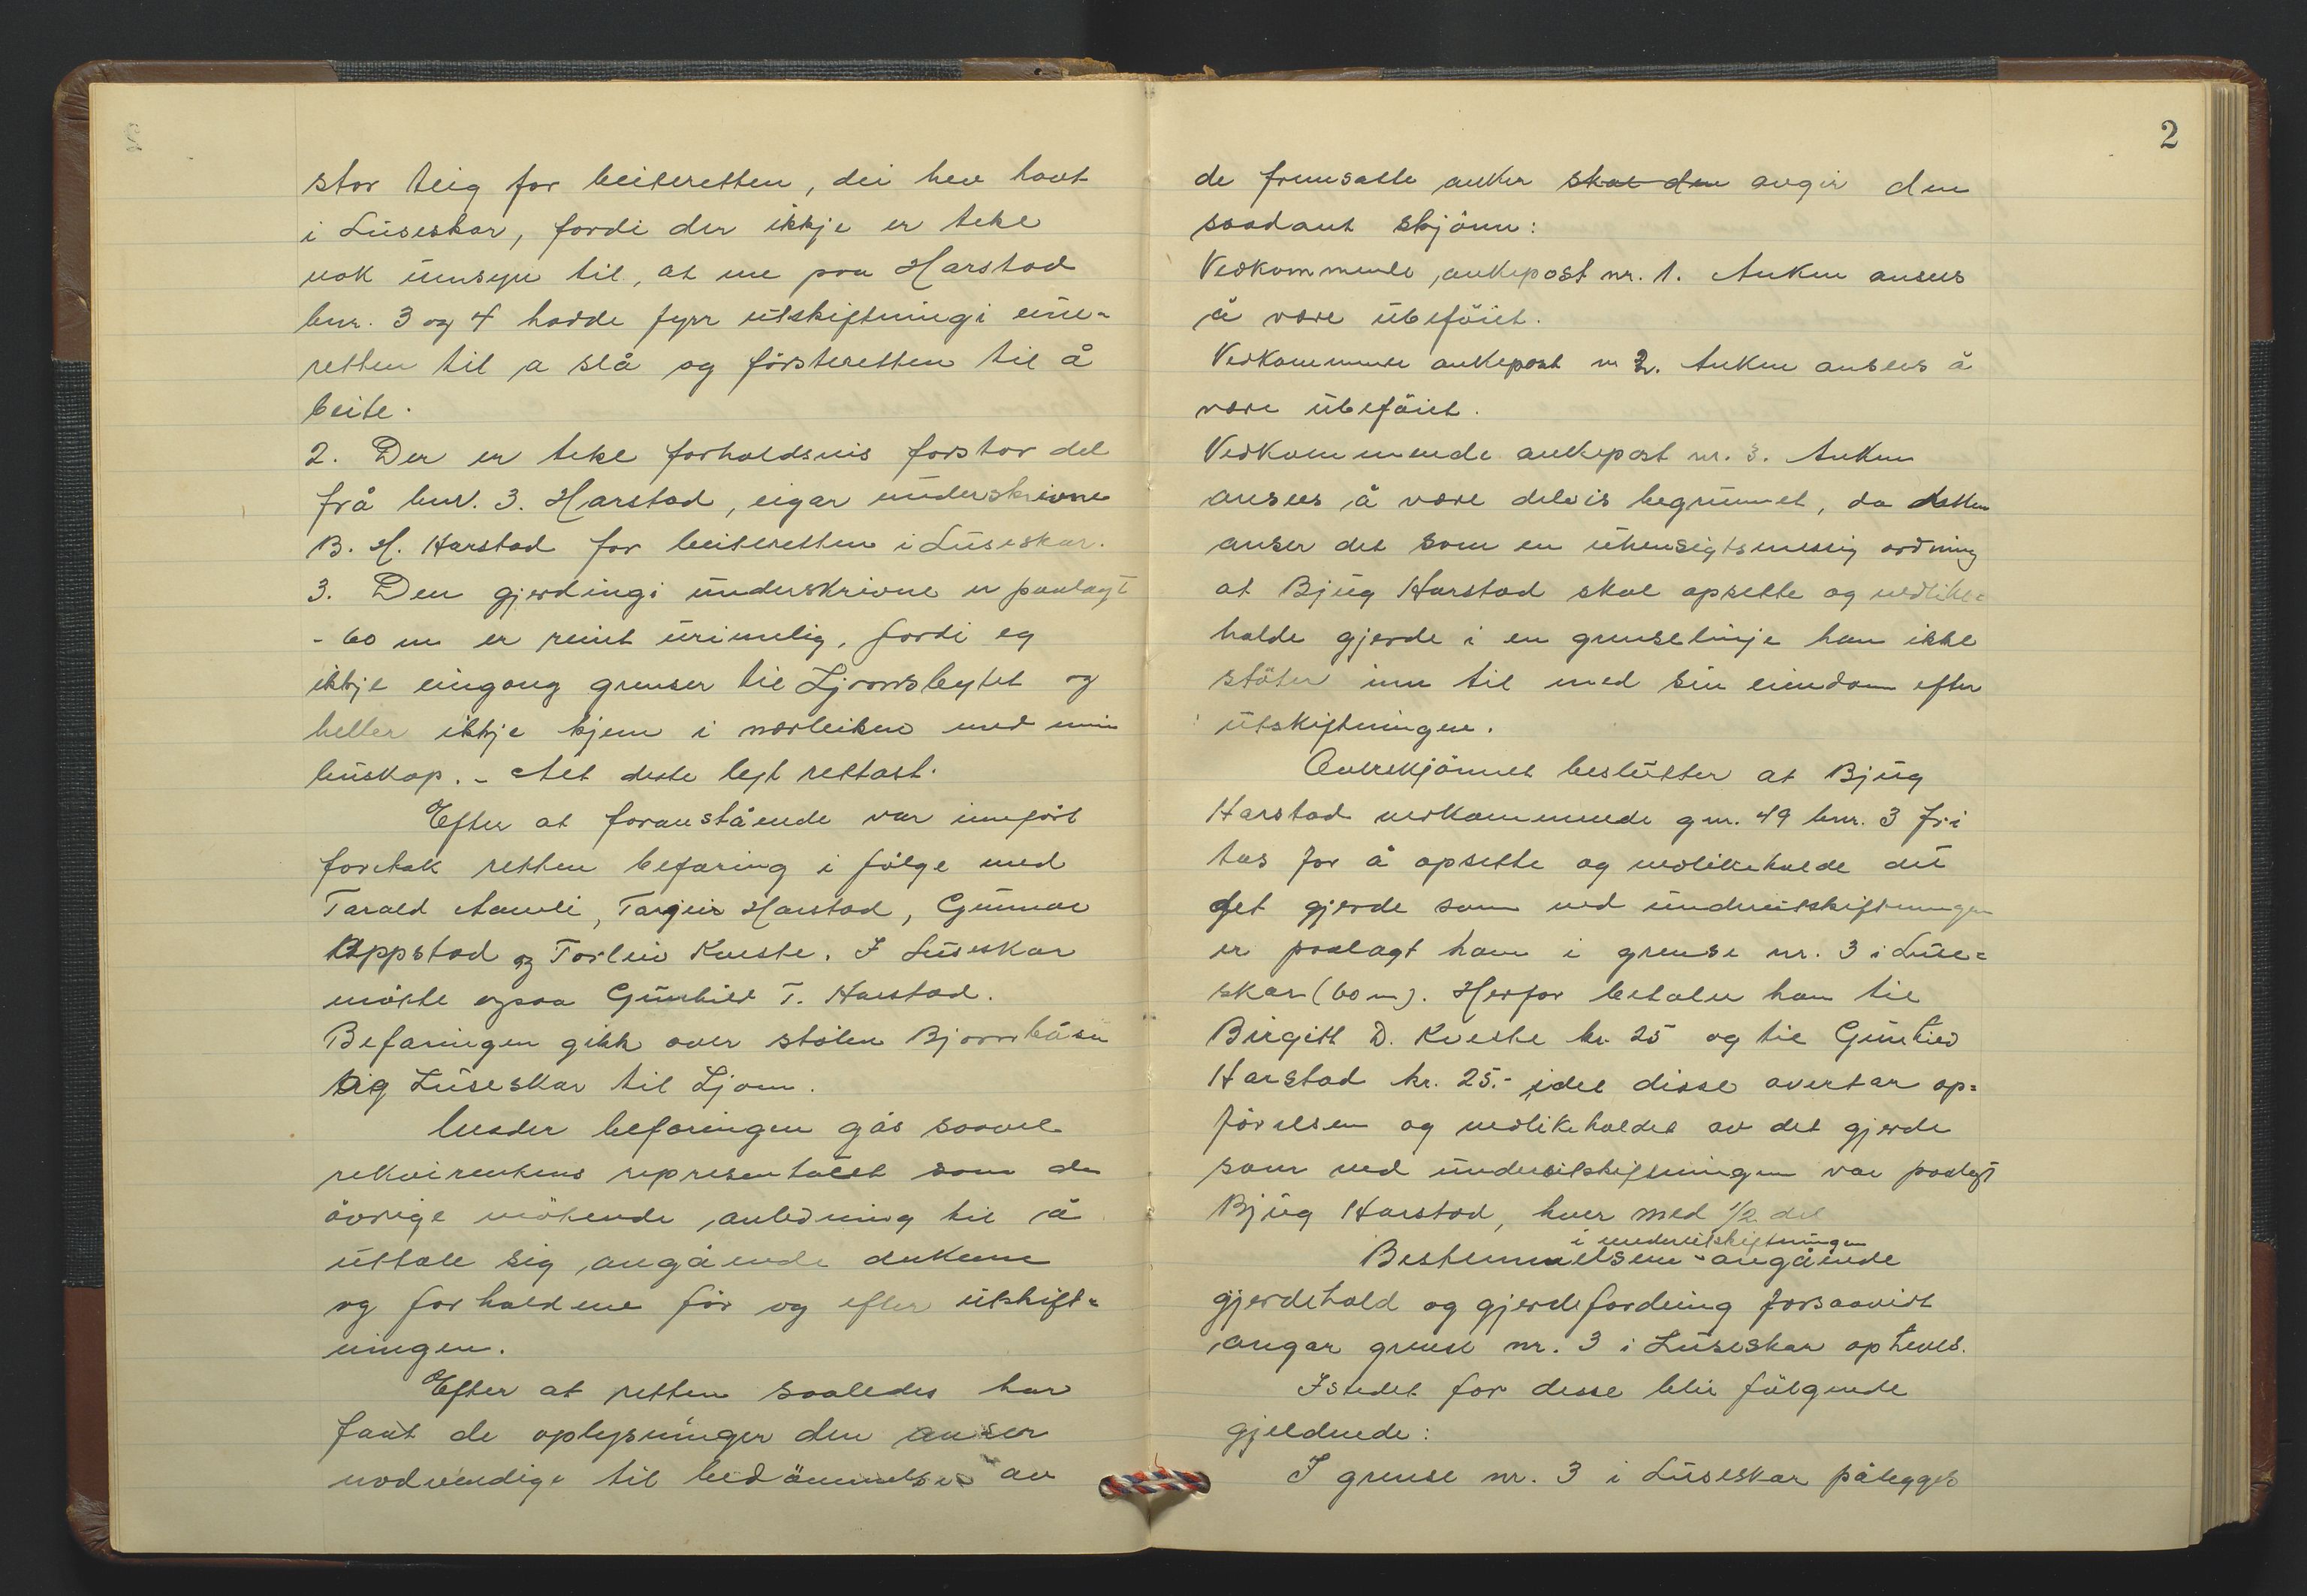 stor teig for beiteretten, dei hev havt
i Lüseskar, fordi der ikkje er teke
nok ümsyn til, at me paa Harstad
bnr. 3 og 4 hadde fyrr ütskiftningi eine-
retten til a slå og försteretten til å
beite.
2. Der er teke forholdsvis forstor del
frå bnr. 3. Harstad, eigar ünderskrivne
B. H. Harstad for beiteretten i Lüseskar.
3. Den gjerdingi ünderskrivne er paalagt
- 60 m er reint ürimelig, fordi eg
ikkje eingong grenser til Ljomsbeytet og
heller ikkje kjem i nærleiken med min
büskap. - Alt dette legt rettast.
Efter at foranstående var innfört
foretok retten befaring i fölge med
Tarald Aamli, Targeir Harstad, Günnar
Uppstad og Torleiv Kveste. I Lüseskar
mötte ogsaa Günhild T. Harstad.
Befaringen gikk over stölen Bjorrbåsen
og Lüseskar til Ljom.
Under befaringen gås saavel
rekvirentens representant som de
övrige mötende anledning til å
üttale sig angående ankene
og forholdene för og efter ütskift-
ningen.
Efter at retten saaledes har
faat de oplysninger den anser
nodvendige til bedömmelse av
2
de fremsatte anker skal den avgir den
saadant skjönn:
Vedkommende ankepost nr. 1. Anken ansees
å være übeföiet.
Vedkommende ankepost nr 2. Anken ansees å
være übeföiet.
Vedkommende ankepost nr. 3. Anken
ansees å være delvis begrünnet, da retten
anser det som en ühensigtsmessig ordning
at Bjüg Harstad skal opsette og vedlike-
holde gjerde i en grenselinje han ikke
stöter inn til med sin eiendom efter
ütskiftningen.
Overskjönnet beslütter at Bjüg
Harstad vedkommende gnr. 49 bnr. 3 fri
tas for å opsette og vedlikeholde det
gjerde som ved ünderütskiftningen
er paalagt ham i grense nr. 3 i Lüse-
skar (60 m). Herfor betaler han til
Birgitt D. Kveste kr. 25 og til Günhild
Harstad kr. 25.- idet disse overtar op-
förelsen og vedlikeholdet av det gjerde
som ved ünderütskiftningen var paalagt
Bjüg Harstad, hver med 1/2 del
i underütskiftningen
Bestemmelsene angående
gjerdehold og gjerdefordeling forsaavidt
angar grense nr. 3 i Lüseskar opheves.
Istedet for desse blir fölgende
gjeldende:
I grense nr. 3 i Lüseskar pålegges